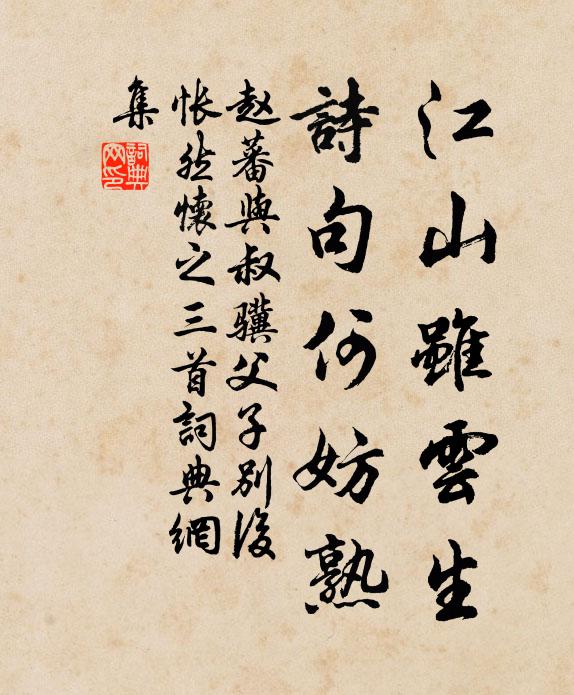 江山雖雲生
詩句何妨熟
赵蕃與叔驥父子别後
悵然懷之三首詞典網
集
詞典
网印